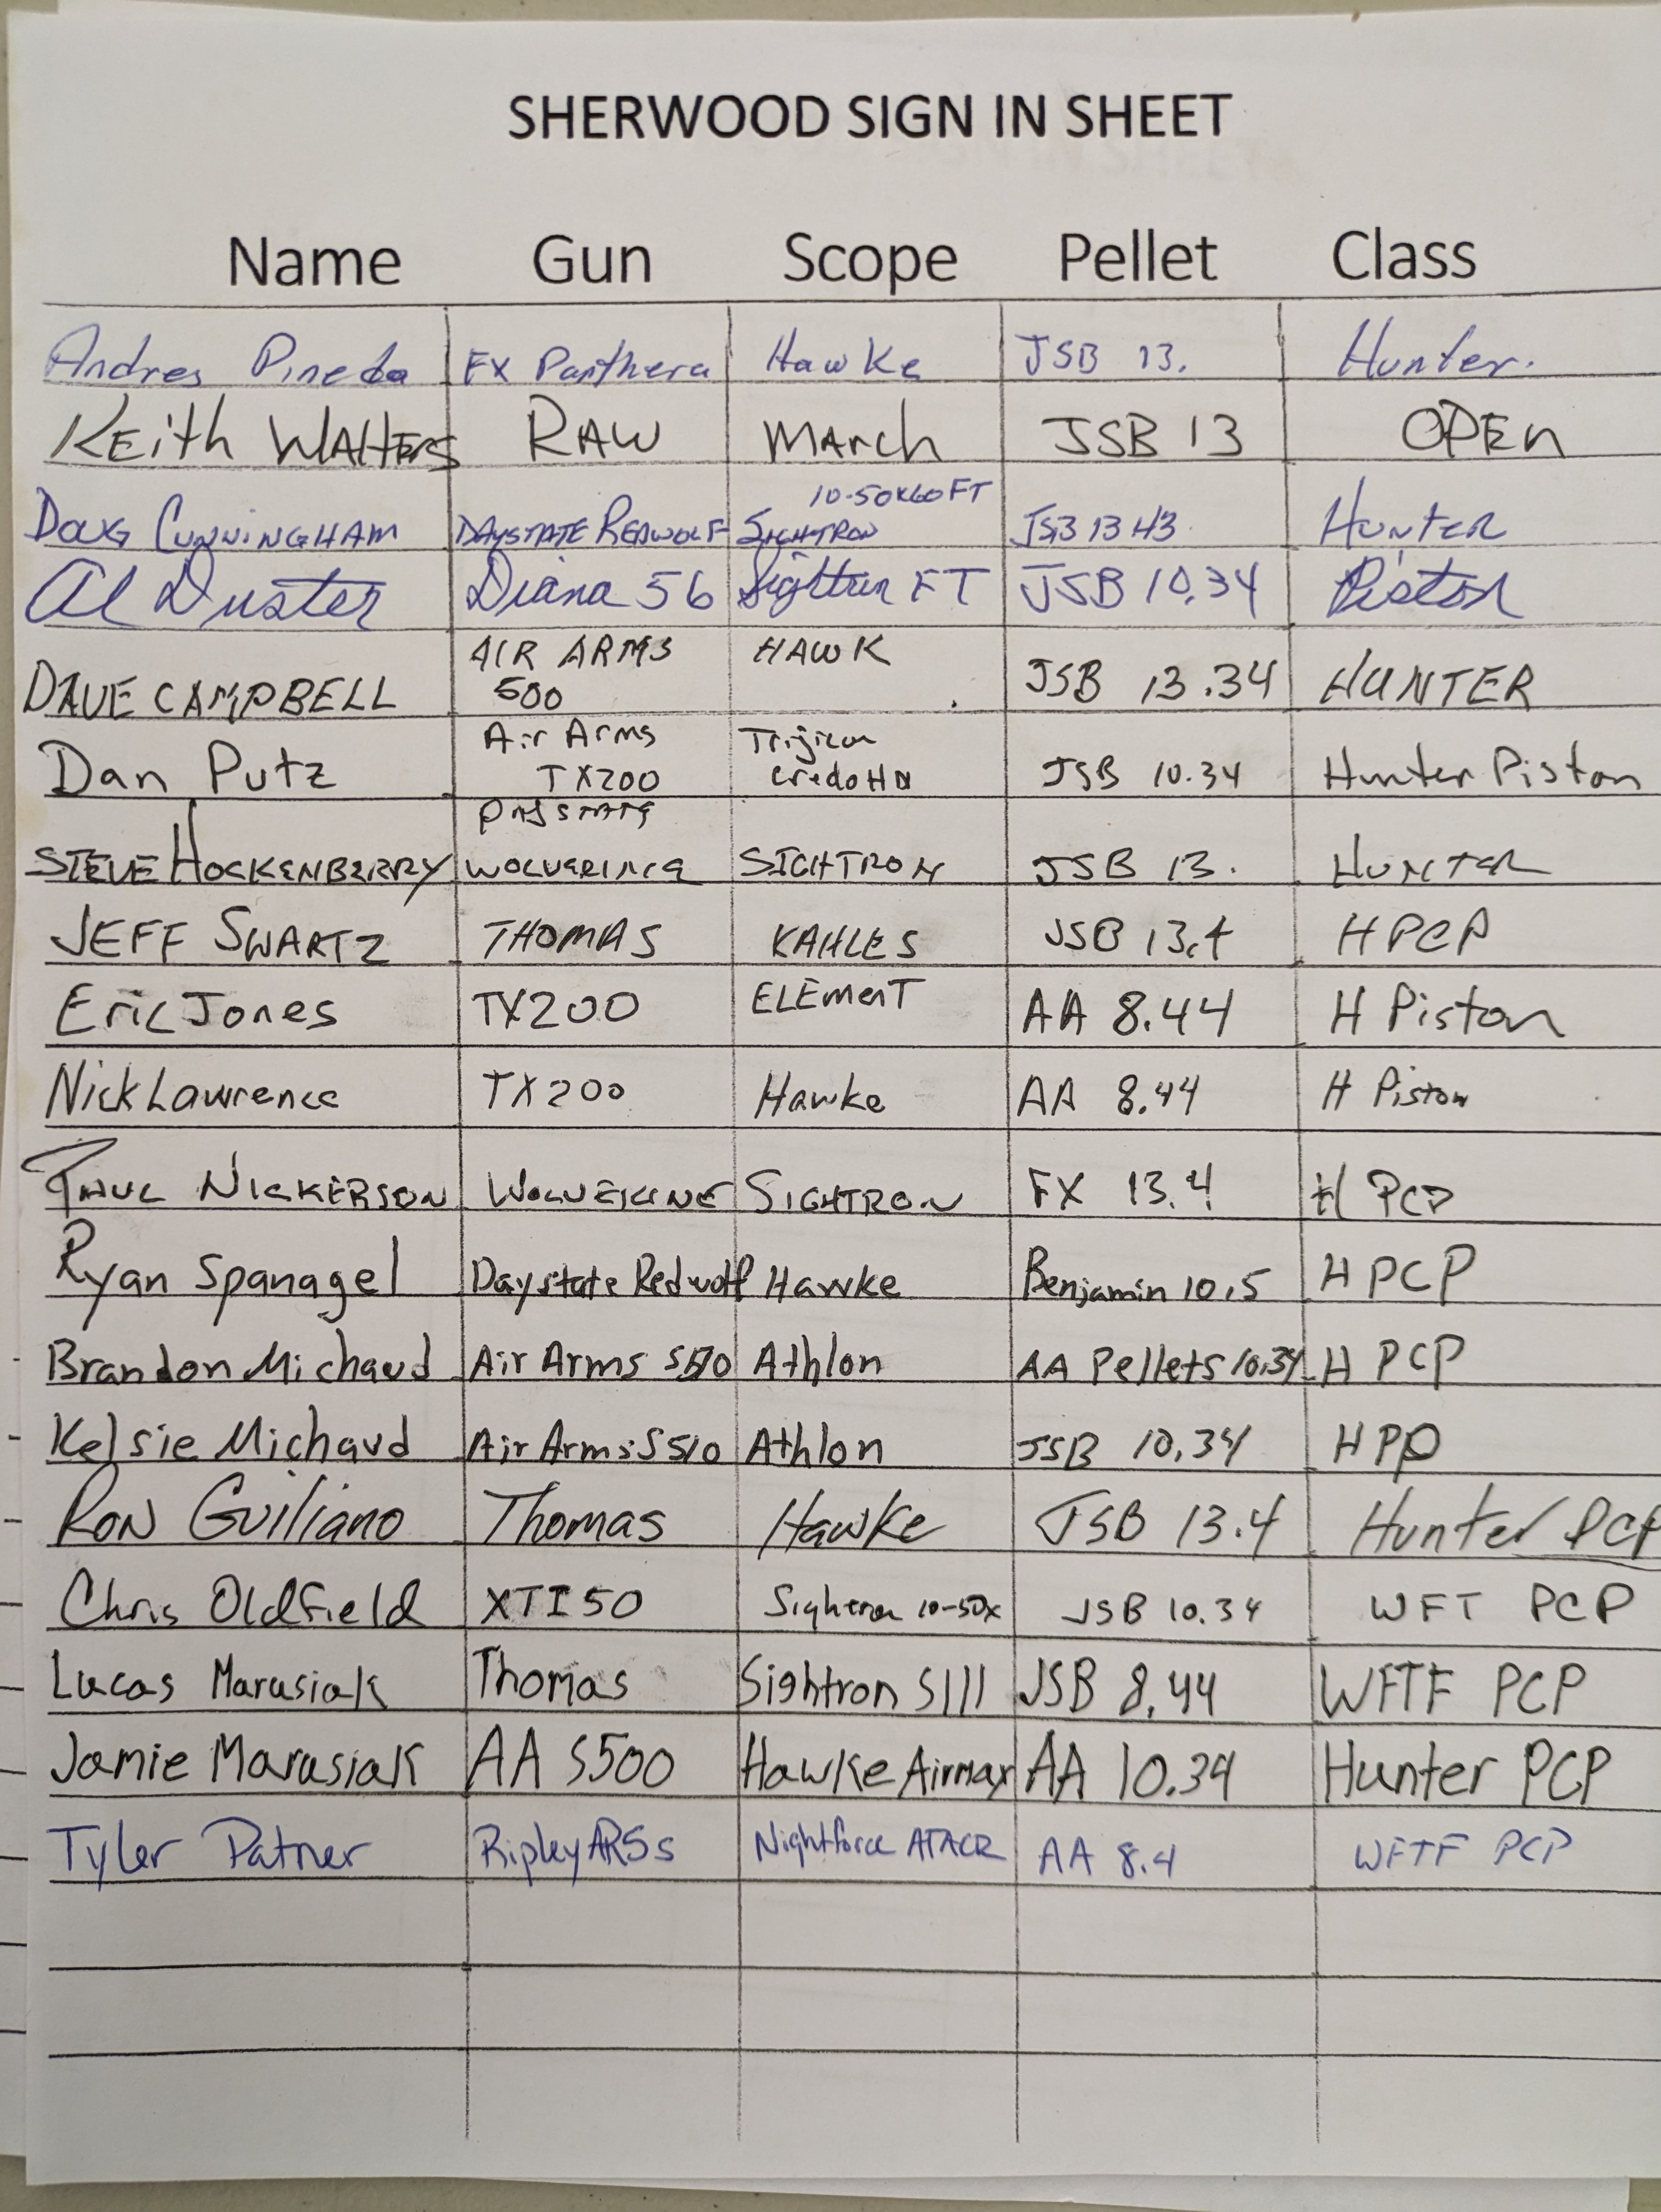 SHERWOOD SIGN IN SHEET
Name Gun Scope Pellet Class
Andres Pineda FX Panthera Hawke JSB 13. Hunter.
KEith WALTERS RAW MArch JSB 13 OPEn
10-50x60 FT
DOUG CUNNINGHAM DAYSTATE REDWOLF SIGHTRON JSB 13 43 HUNTER
Al Duster Diana 56 Sightron FT JSB 10.34 Piston
AIR ARMS HAWK
DAVE CAMPBELL 500 JSB 13.34 HUNTER
Air Arms Trijicon
Dan Putz TX200 Credo HD JSB 10.34 Hunter Piston
DAYSTATE
STEVE HOCKENBERRY WOLVERINE SIGHTRON JSB 13. HUNTER
JEFF SWARTZ THOMAS KAHLES JSB 13.4 H PCP
Eric Jones TX200 ELEmenT AA 8.44 H Piston
Nick Lawrence TX200 Hawke AA 8.44 H Piston
PAUL NICKERSON WOLVERINE SIGHTRON FX 13.4 H PCP
Ryan Spanagel Daystate Redwolf Hawke Benjamin 10.5 H PCP
Brandon Michaud Air Arms S510 Athlon AA Pellets 10.34 H PCP
Kelsie Michaud Air Arms S510 Athlon JSB 10.34 H PP
RON Guiliano Thomas Hawke JSB 13.4 Hunter PCP
Chris Oldfield XTI50 Sightron 10-50x JSB 10.34 WFT PCP
Lucas Marasiak Thomas Sightron SIII JSB 8.44 WFTF PCP
Jamie Marasiak AA S500 Hawke Airmax AA 10.34 Hunter PCP
Tyler Patner Ripley AR5s Nightforce ATACR AA 8.4 WFTF PCP